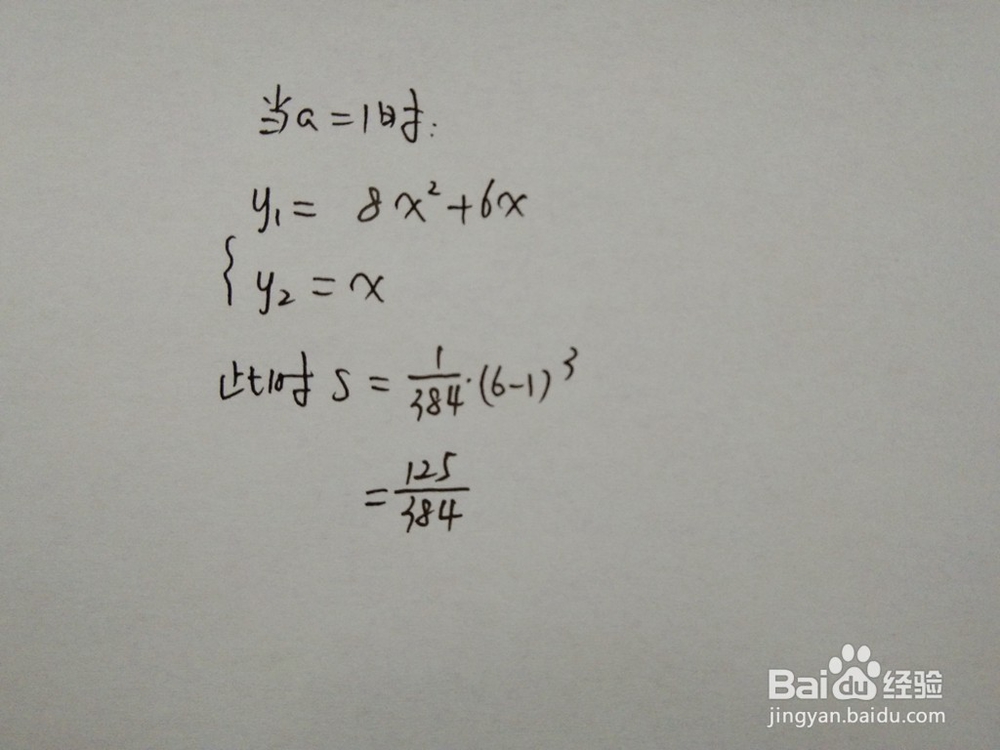 当a=1时:
y₁= 8x²+6x
{ y₂=x
此时 S = 1/384·(6-1)³
= 125/384
Baidu经验
jingyan.baidu.com